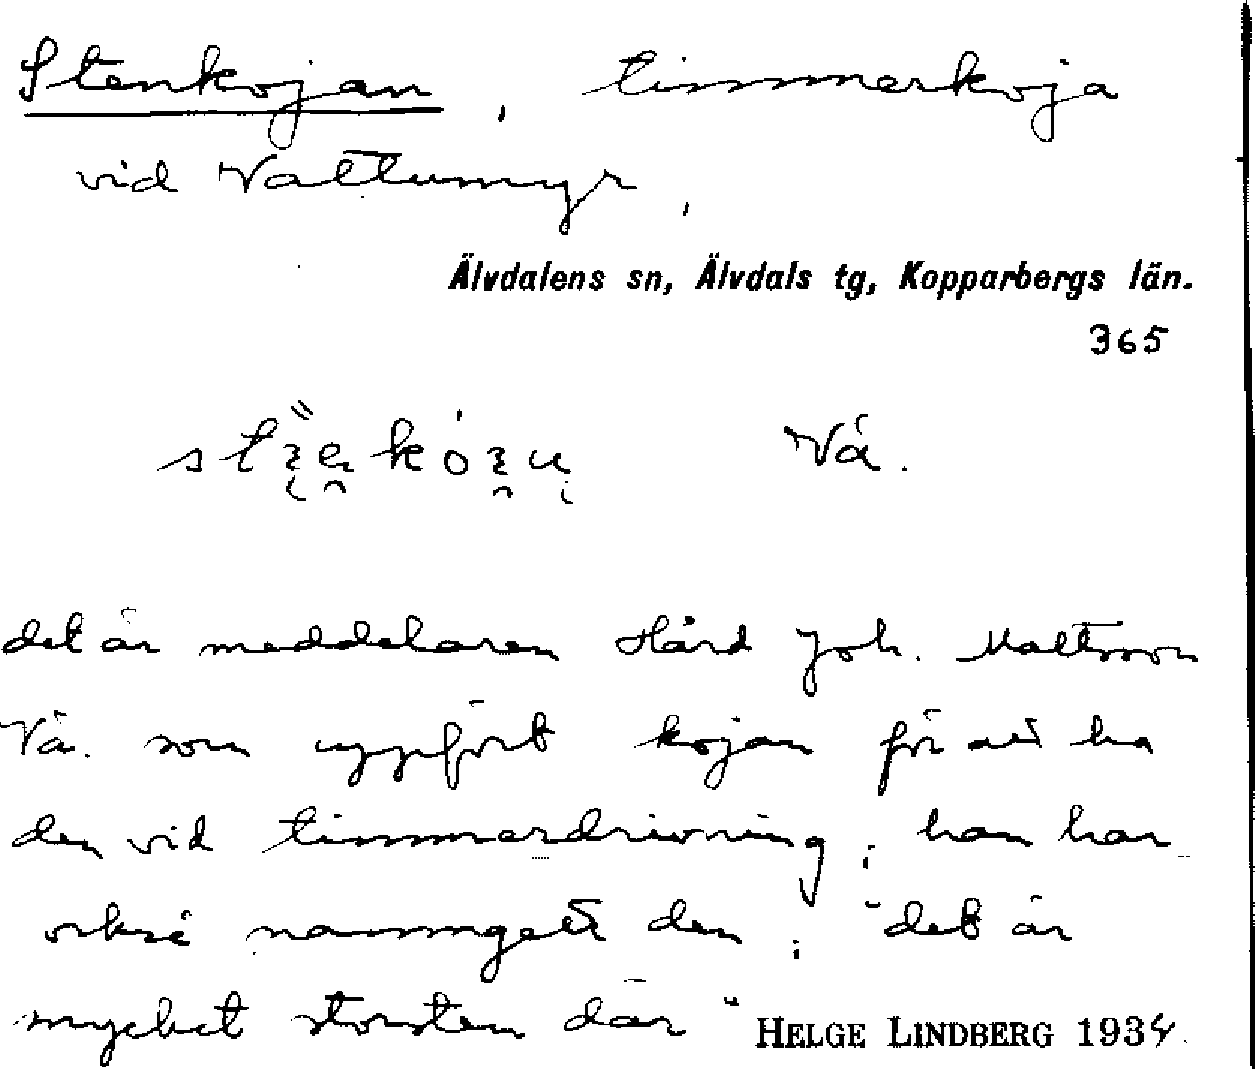 Stenkojan, timmerkoja
vid Vattumyr,
Älvdalens sn, Älvdals tg, Kopparbergs län.
365
Vå.
det är meddelaren Hård Joh. Mattsson
Vå. som uppfört kojan för att ha
den vid timmerdrivning; han har
också namngett den; "det är
mycket storsten där"
HELGE LINDBERG 1934